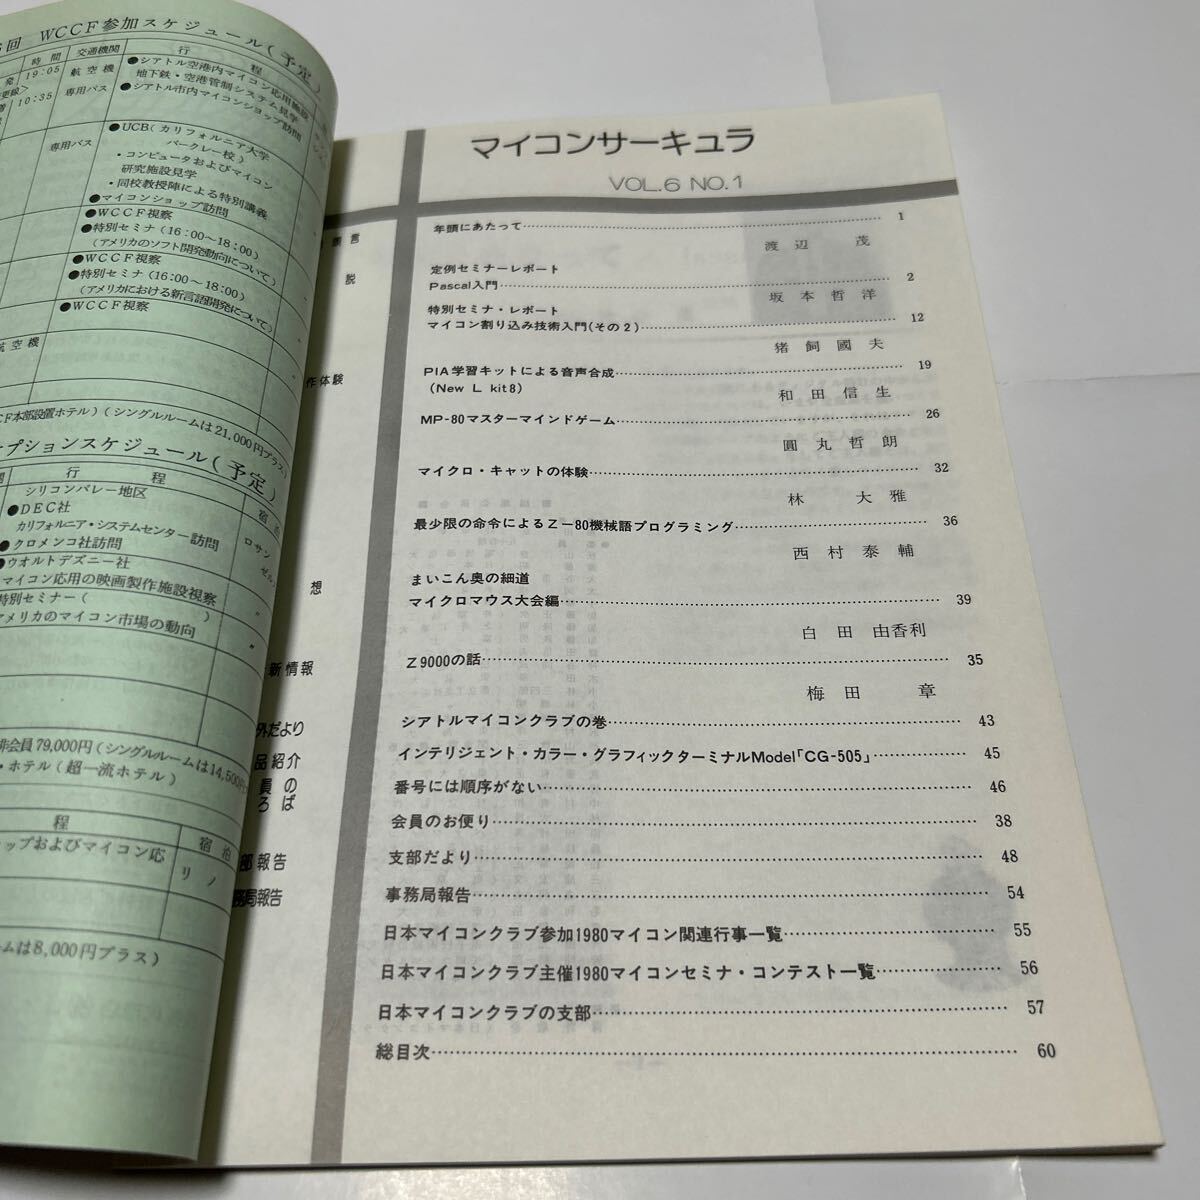 回 WCCF参加スケジュール(予定)
時間 交通機関 行 程
発 19:05 航空機 ●シアトル空港内マイコン応用施設
地下鉄・空港管制システム見学
10:35 専用バス ●シアトル市内マイコンショップ訪問
専用バス ●UCB(カリフォルニア大学
バークレー校)
・コンピュータおよびマイコン
研究施設見学
・同校教授陣による特別講義
●マイコンショップ訪問
●WCCF視察
●特別セミナ(16:00〜18:00)
(アメリカのソフト開発動向について)
●WCCF視察
●特別セミナ(16:00〜18:00)
(アメリカにおける新言語開発について)
●WCCF視察
航空機
本部設置ホテル)(シングルルームは21,000円プラス)
プションスケジュール(予定)
行 程
シリコンバレー地区
●DEC社
カリフォルニア・システムセンター訪問
●クロメンコ社訪問
●ウオルトデズニー社
マイコン応用の映画製作施設視察
特別セミナー( )
アメリカのマイコン市場の動向
ロサン
非会員79,000円(シングルルームは14,500円
・ホテル(超一流ホテル)
程 宿泊
ップおよびマイコン応 リノ
ームは8,000円プラス)
言
説
作体験
想
新情報
外だより
品紹介
員の
ろば
部報告
務局報告
マイコンサーキュラ
VOL.6 NO.1
年頭にあたって 1
渡辺 茂
定例セミナーレポート
Pascal入門 2
坂本哲洋
特別セミナ・レポート
マイコン割り込み技術入門(その2) 12
猪飼國夫
PIA学習キットによる音声合成 19
(New L kit8)
和田信生
MP-80マスターマインドゲーム 26
圓丸哲朗
マイクロ・キャットの体験 32
林 大雅
最少限の命令によるZ-80機械語プログラミング 36
西村泰輔
まいこん奥の細道
マイクロマウス大会編 39
白田 由香利
Z9000の話 35
梅田 章
シアトルマイコンクラブの巻 43
インテリジェント・カラー・グラフィックターミナルModel「CG-505」 45
番号には順序がない 46
会員のお便り 38
支部だより 48
事務局報告 54
日本マイコンクラブ参加1980マイコン関連行事一覧 55
日本マイコンクラブ主催1980マイコンセミナ・コンテスト一覧 56
日本マイコンクラブの支部 57
総目次 60